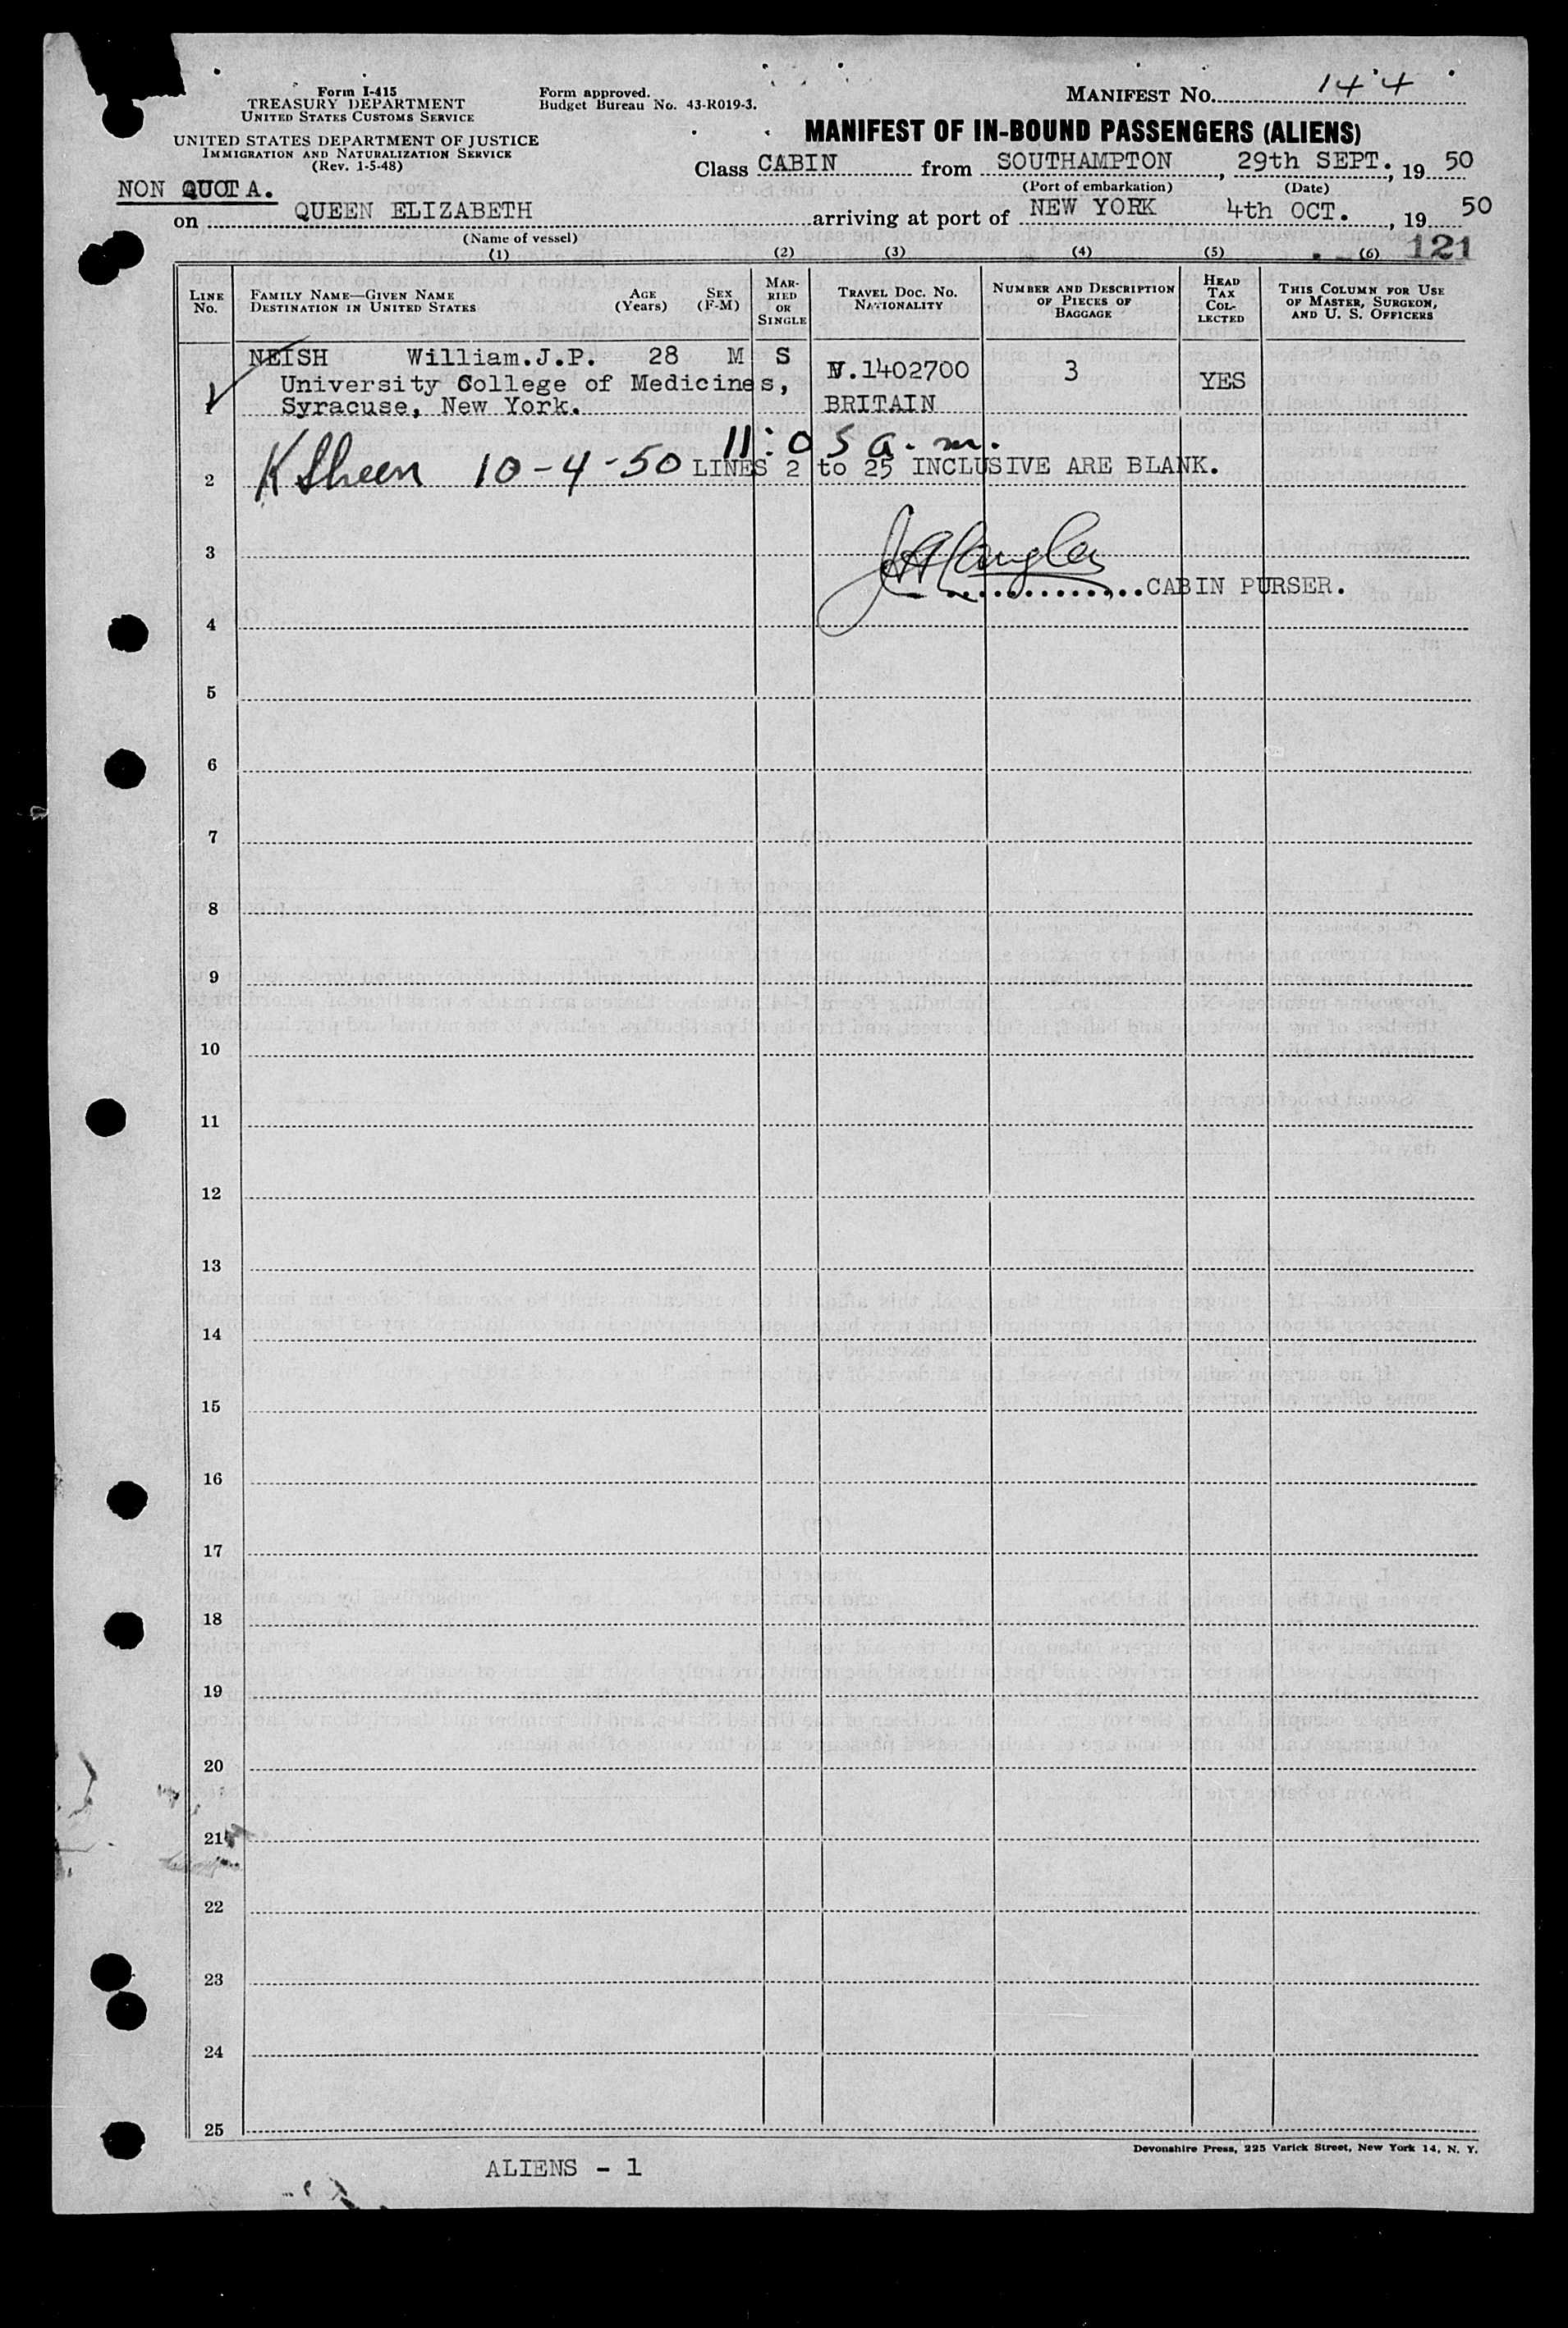 Form I-415
TREASURY DEPARTMENT
UNITED STATES CUSTOMS SERVICE
UNITED STATES DEPARTMENT OF JUSTICE
IMMIGRATION AND NATURALIZATION SERVICE
(Rev. 1-5-48)
Form approved.
Budget Bureau No. 43-R019-3.
MANIFEST NO. 144
MANIFEST OF IN-BOUND PASSENGERS (ALIENS)
Class CABIN from SOUTHAMPTON, 29th SEPT., 1950
(Port of embarkation) (Date)
NON QUOTA.
on QUEEN ELIZABETH arriving at port of NEW YORK 4th OCT., 1950
(Name of vessel)
(1) (2) (3) (4) (5) (6) 121
LINE NO.
FAMILY NAME—GIVEN NAME
DESTINATION IN UNITED STATES
AGE (Years)
SEX (F-M)
MARRIED OR SINGLE
TRAVEL DOC. NO.
NATIONALITY
NUMBER AND DESCRIPTION OF PIECES OF BAGGAGE
HEAD TAX COLLECTED
THIS COLUMN FOR USE OF MASTER, SURGEON, AND U. S. OFFICERS
NEISH William.J.P. 28 M S V.1402700 3 YES
University College of Medicines,
Syracuse, New York. BRITAIN
11:05 a.m.
2 K Sheen 10-4-50 LINES 2 to 25 INCLUSIVE ARE BLANK.
3
CABIN PURSER.
4
5
6
7
8
9
10
11
12
13
14
15
16
17
18
19
20
21
22
23
24
25
Devonshire Press, 225 Varick Street, New York 14, N. Y.
ALIENS - 1